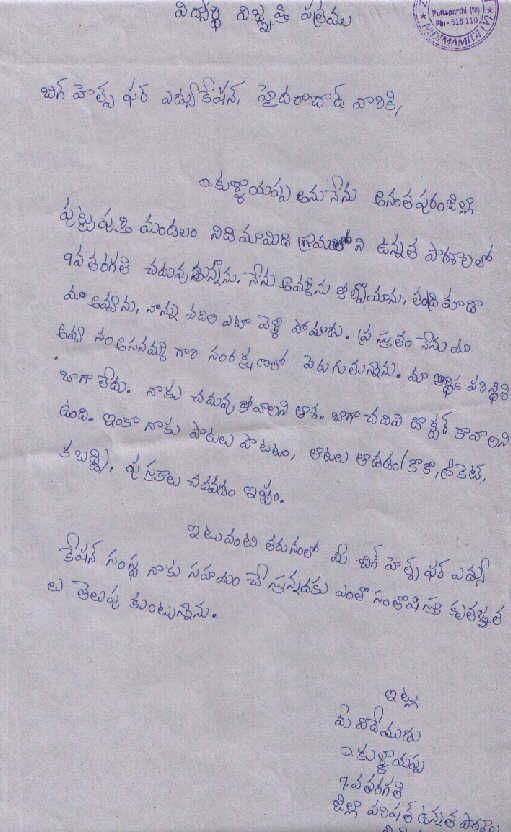 విద్యార్థి విజ్ఞప్తి పత్రము
Puttaparthi (M)
Pin - 515 110
బిగ్ హెల్ప్ ఫర్ ఎడ్యుకేషన్, హైదరాబాద్ వారికి,
కుళ్ళాయప్ప అను నేను అనంతపురం జిల్లా
పుట్టపర్తి మండలం నిడిమామిడి గ్రామంలోని ఉన్నత పాఠశాలలో
9వ తరగతి చదువుతున్నాను. నేను అమ్మను కోల్పోయాను, తండ్రి కూడా
మా అమ్మను, నాన్ను వదిలి ఎటో వెళ్ళి పోయాడు. ప్రస్తుతం నేను మా
అవ్వ గారి సంరక్షణలో పెరుగుతున్నాను. మా ఆర్థిక పరిస్థితి
బాగా లేదు. నాకు చదువు కోవాలని ఆశ. బాగా చదివి డాక్టర్ కావాలని
ఉంది. ఇంకా నాకు పాటలు పాడటం, ఆటలు ఆడటం (కోకో, క్రికెట్,
కబడ్డి), పుస్తకాలు చదవడం ఇష్టం.
ఇటువంటి తరుణంలో మీ బిగ్ హెల్ప్ ఫర్ ఎడ్యు
కేషన్ సంస్థ నాకు సహాయం చేస్తున్నందుకు ఎంతో సంతోషిస్తూ కృతజ్ఞత
లు తెలుపు కుంటున్నాను.
ఇట్లు
మీ విధేయుడు
కుళ్ళాయప్ప
9వ తరగతి
జిల్లా పరిషత్ ఉన్నత పాఠశాల